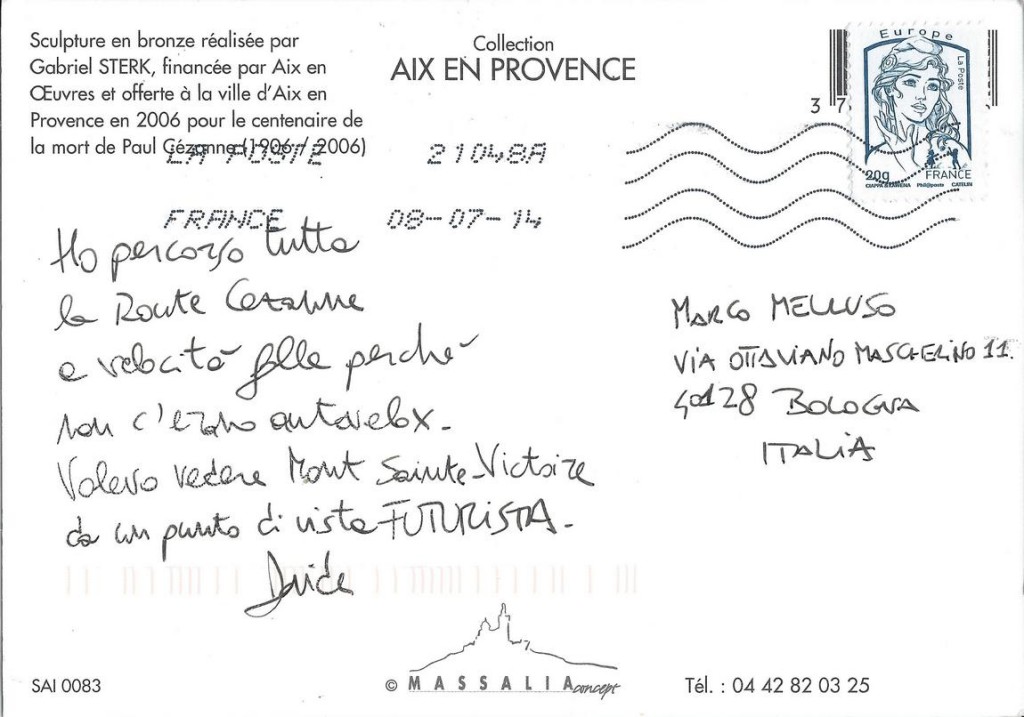 Sculpture en bronze réalisée par
Gabriel STERK, financée par Aix en
Œuvres et offerte à la ville d'Aix en
Provence en 2006 pour le centenaire de
la mort de Paul Cézanne (1906 / 2006)
Collection
AIX EN PROVENCE
Europe
La Poste
3 7
20g
FRANCE
CIAPPA & KAWENA Phil@poste CATELIN
LA POSTE 21048A
FRANCE 08-07-14
Ho percorso tutta
la Route Cezanne
a velocità folle perché
non c'erano autovelox.
Volevo vedere Mont Sainte-Victoire
da un punto di vista FUTURISTA.
Davide
MARCO MELLUSO
VIA OTTAVIANO MASCHERINO 11.
40128 BOLOGNA
ITALIA
SAI 0083
© MASSALIA concept
Tél. : 04 42 82 03 25